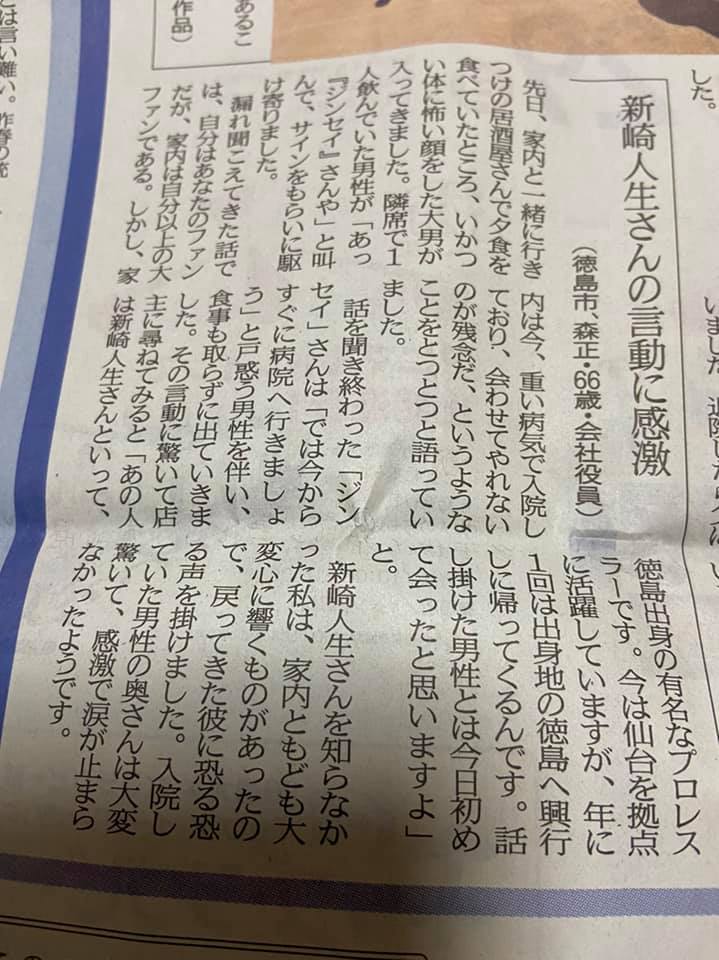 した。
新崎人生さんの言動に感激
(徳島市、森正・66歳・会社役員)
先日、家内と一緒に行き
つけの居酒屋さんで夕食を
食べていたところ、いかつ
い体に怖い顔をした大男が
入ってきました。隣席で1
人飲んでいた男性が「あっ
『ジンセイ』さんや」と叫
んで、サインをもらいに駆
け寄りました。
漏れ聞こえてきた話で
は、自分はあなたのファン
だが、家内は自分以上の大
ファンである。しかし、家
内は今、重い病気で入院し
ており、会わせてやれない
のが残念だ、というような
ことをとつとつと語ってい
ました。
話を聞き終わった「ジン
セイ」さんは「では今から
すぐに病院へ行きましょ
う」と戸惑う男性を伴い、
食事も取らずに出ていきま
した。その言動に驚いて店
主に尋ねてみると「あの人
は新崎人生さんといって、
徳島出身の有名なプロレス
ラーです。今は仙台を拠点
に活躍していますが、年に
1回は出身地の徳島へ興行
しに帰ってくるんです。話
し掛けた男性とは今日初め
て会ったと思いますよ」
と。
新崎人生さんを知らなか
った私は、家内ともども大
変心に響くものがあったの
で、戻ってきた彼に恐る恐
る声を掛けました。入院し
ていた男性の奥さんは大変
驚いて、感激で涙が止まら
なかったようです。
あるこ
作品)
とは言い難い。昨春の統